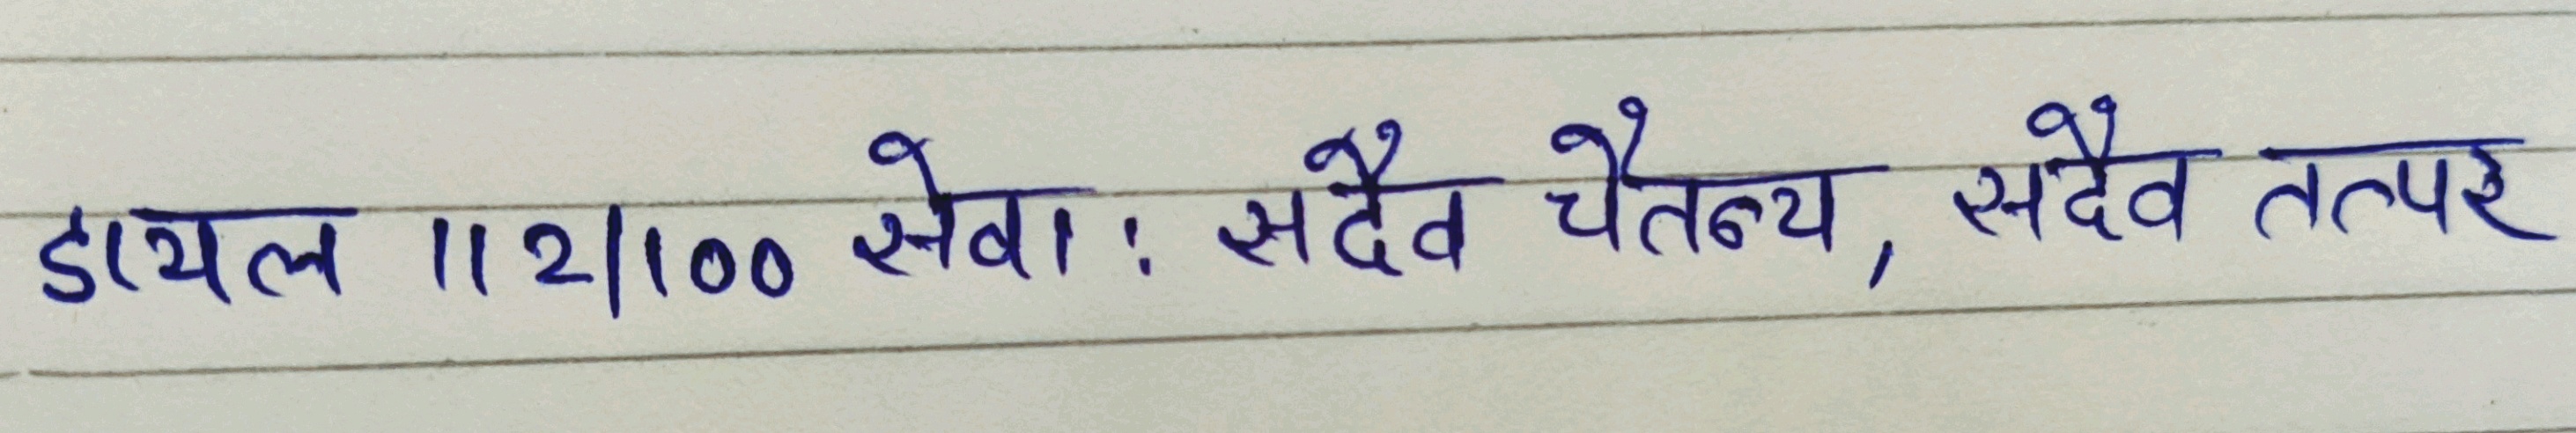 डायल 112/100 सेवा : सदैव चैतन्य, सदैव तत्पर